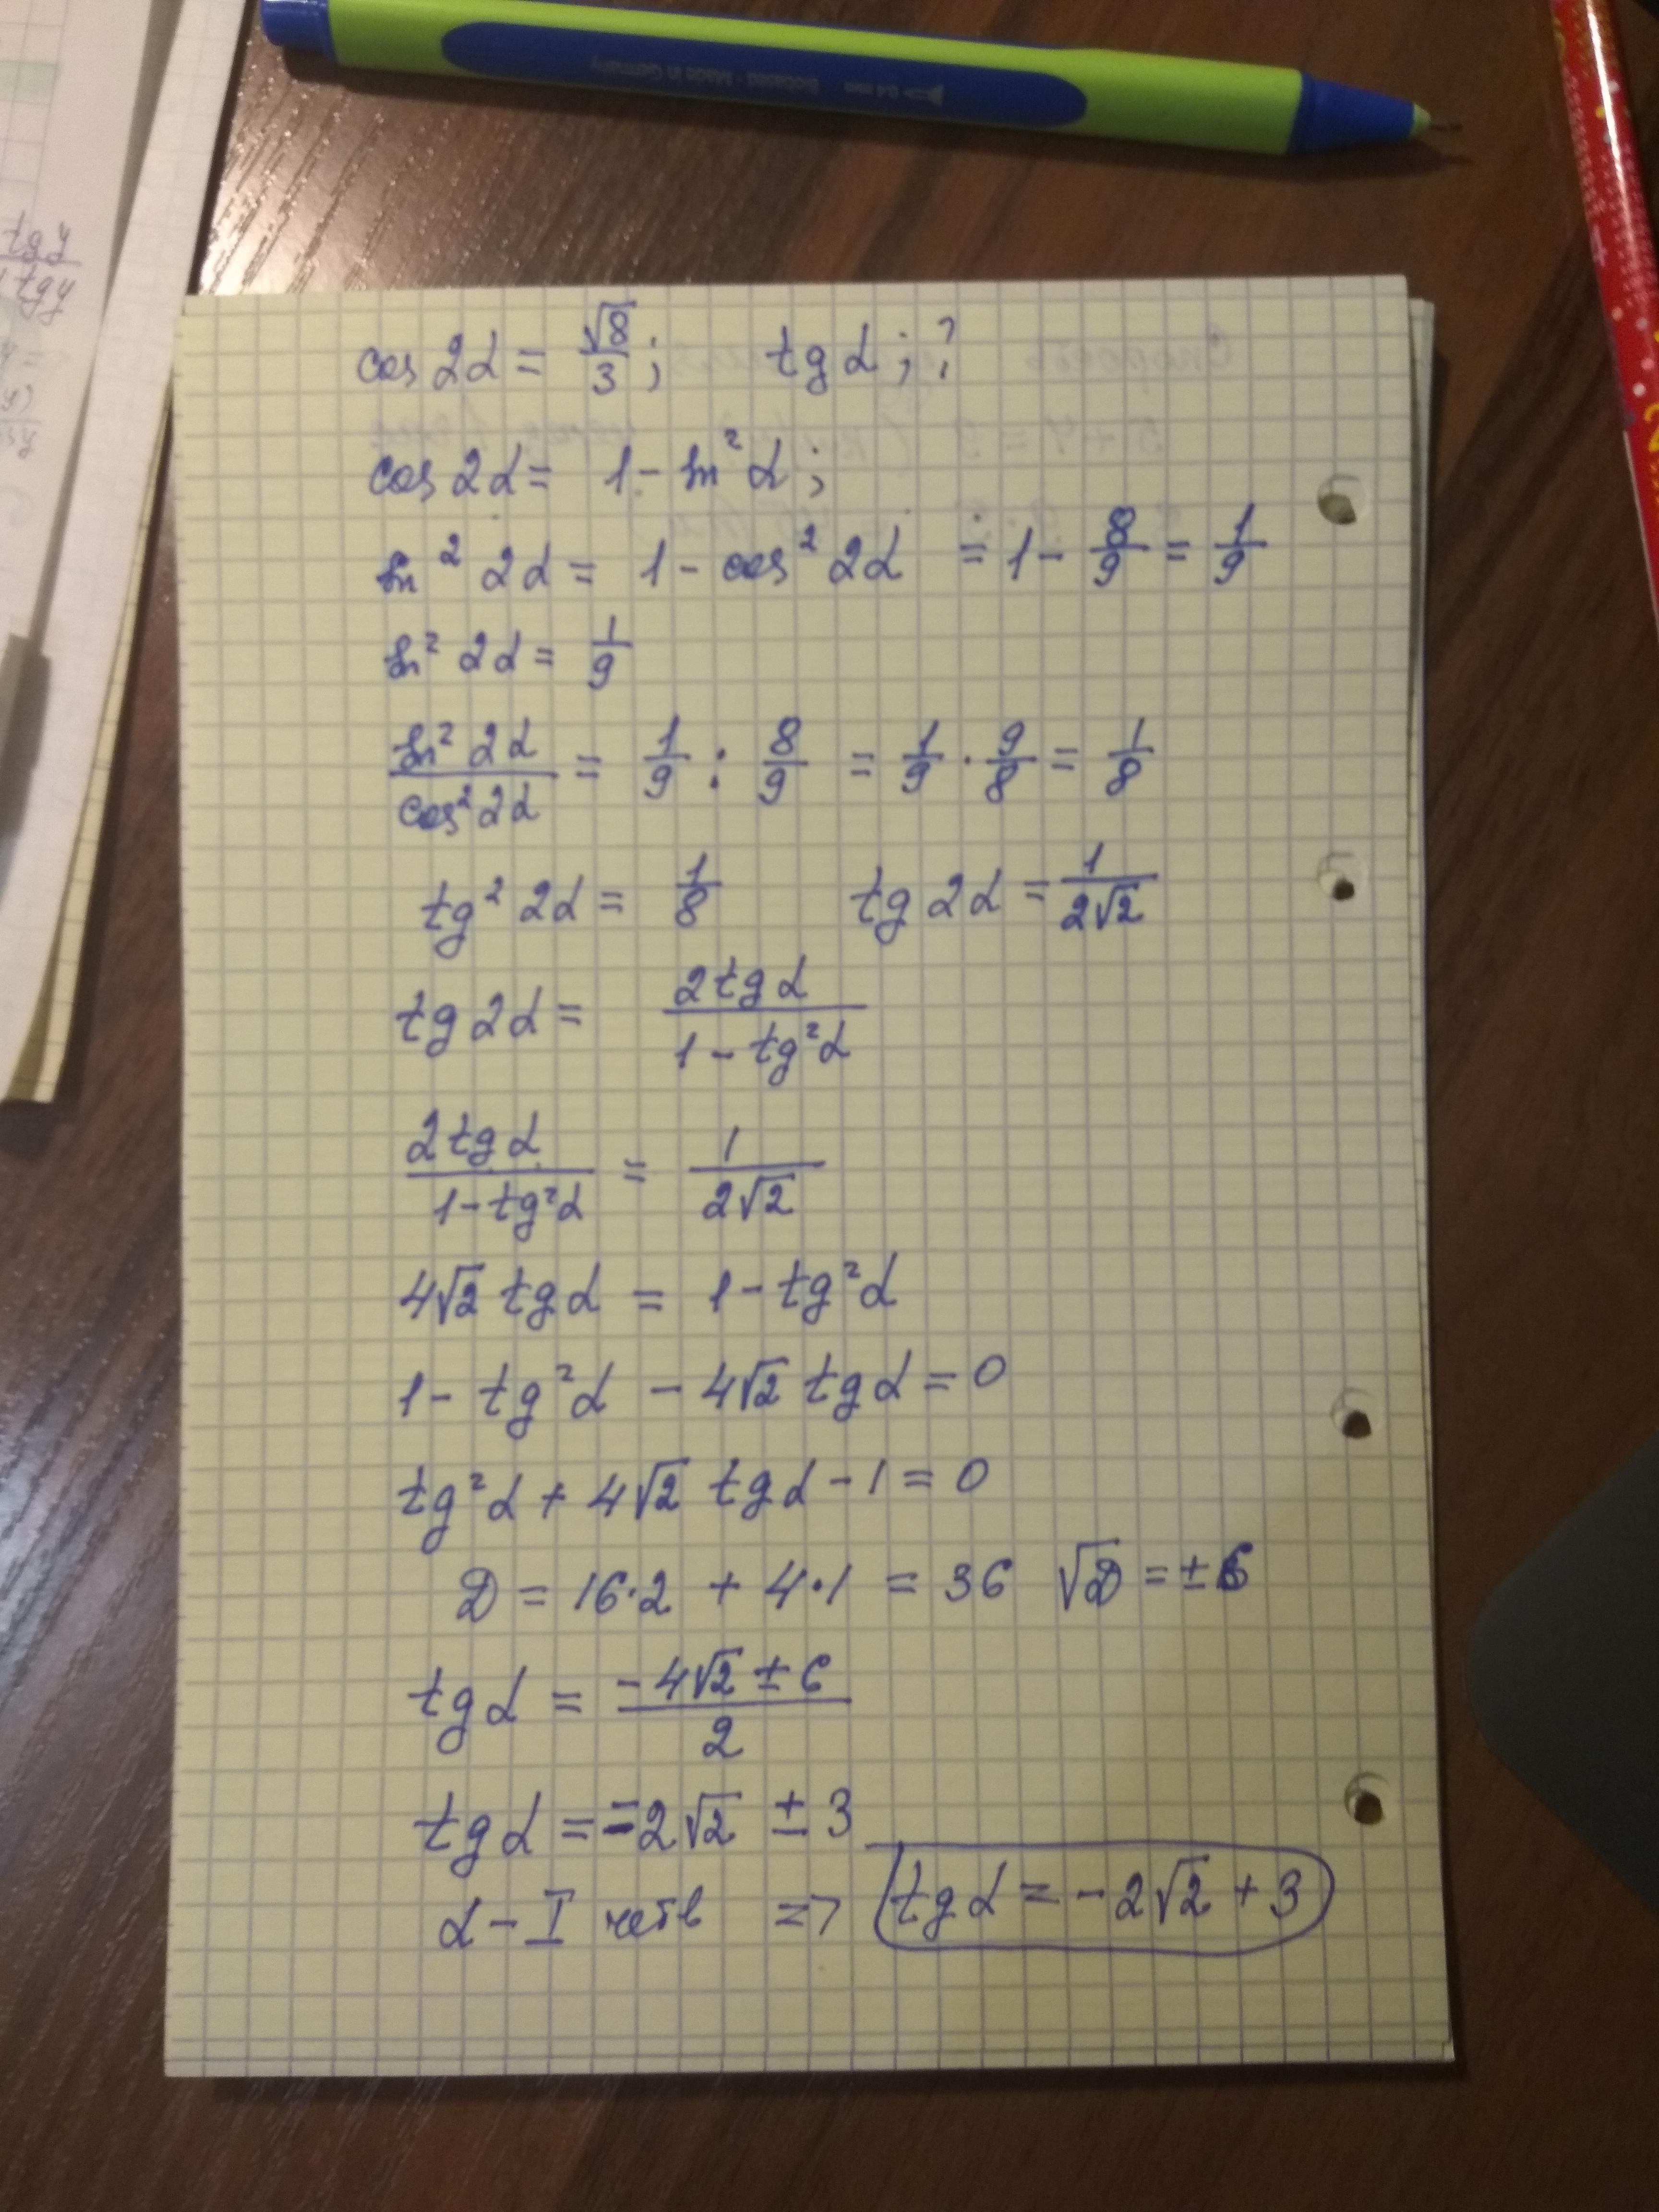 0.4 mm Schneider - Made in Germany
tg y
1 tg y
cos 2α = √8/3 ; tg α ; ?
cos 2α = 1 - sin² α ;
sin² 2α = 1 - cos² 2α = 1 - 8/9 = 1/9
sin² 2α = 1/9
sin² 2α / cos² 2α = 1/9 : 8/9 = 1/9 · 9/8 = 1/8
tg² 2α = 1/8 tg 2α = 1/(2√2)
tg 2α = 2 tg α / (1 - tg² α)
2 tg α / (1 - tg² α) = 1/(2√2)
4√2 tg α = 1 - tg² α
1 - tg² α - 4√2 tg α = 0
tg² α + 4√2 tg α - 1 = 0
D = 16·2 + 4·1 = 36 √D = ±6
tg α = (-4√2 ± 6)/2
tg α = -2√2 ± 3
α - I четв => tg α = -2√2 + 3